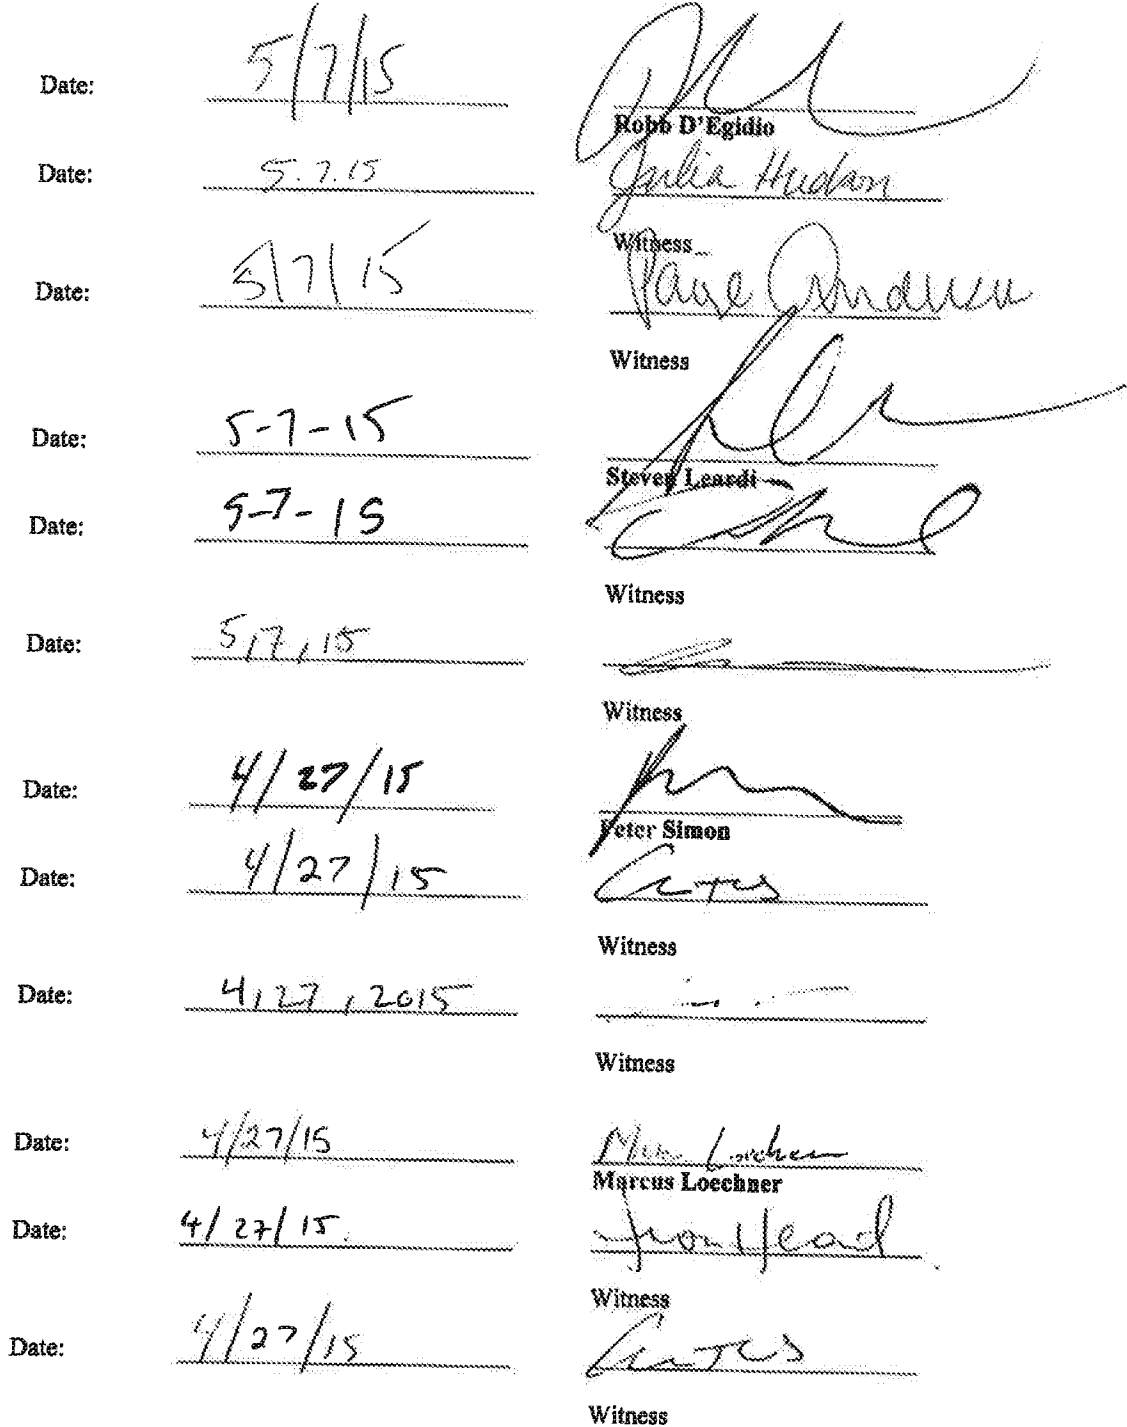 Date: 5/7/15
Robb D'Egidio
Date: 5.7.15 Julia Hudson
Witness
Date: 5/7/15 Paige
Witness
Date: 5-7-15
Steven Leardi
Date: 5-7-15
Witness
Date: 5,7,15
Witness
Date: 4/27/15
Peter Simon
Date: 4/27/15
Witness
Date: 4,27,2015
Witness
Date: 4/27/15
Marcus Loechner
Date: 4/27/15. Head
Witness
Date: 4/27/15
Witness